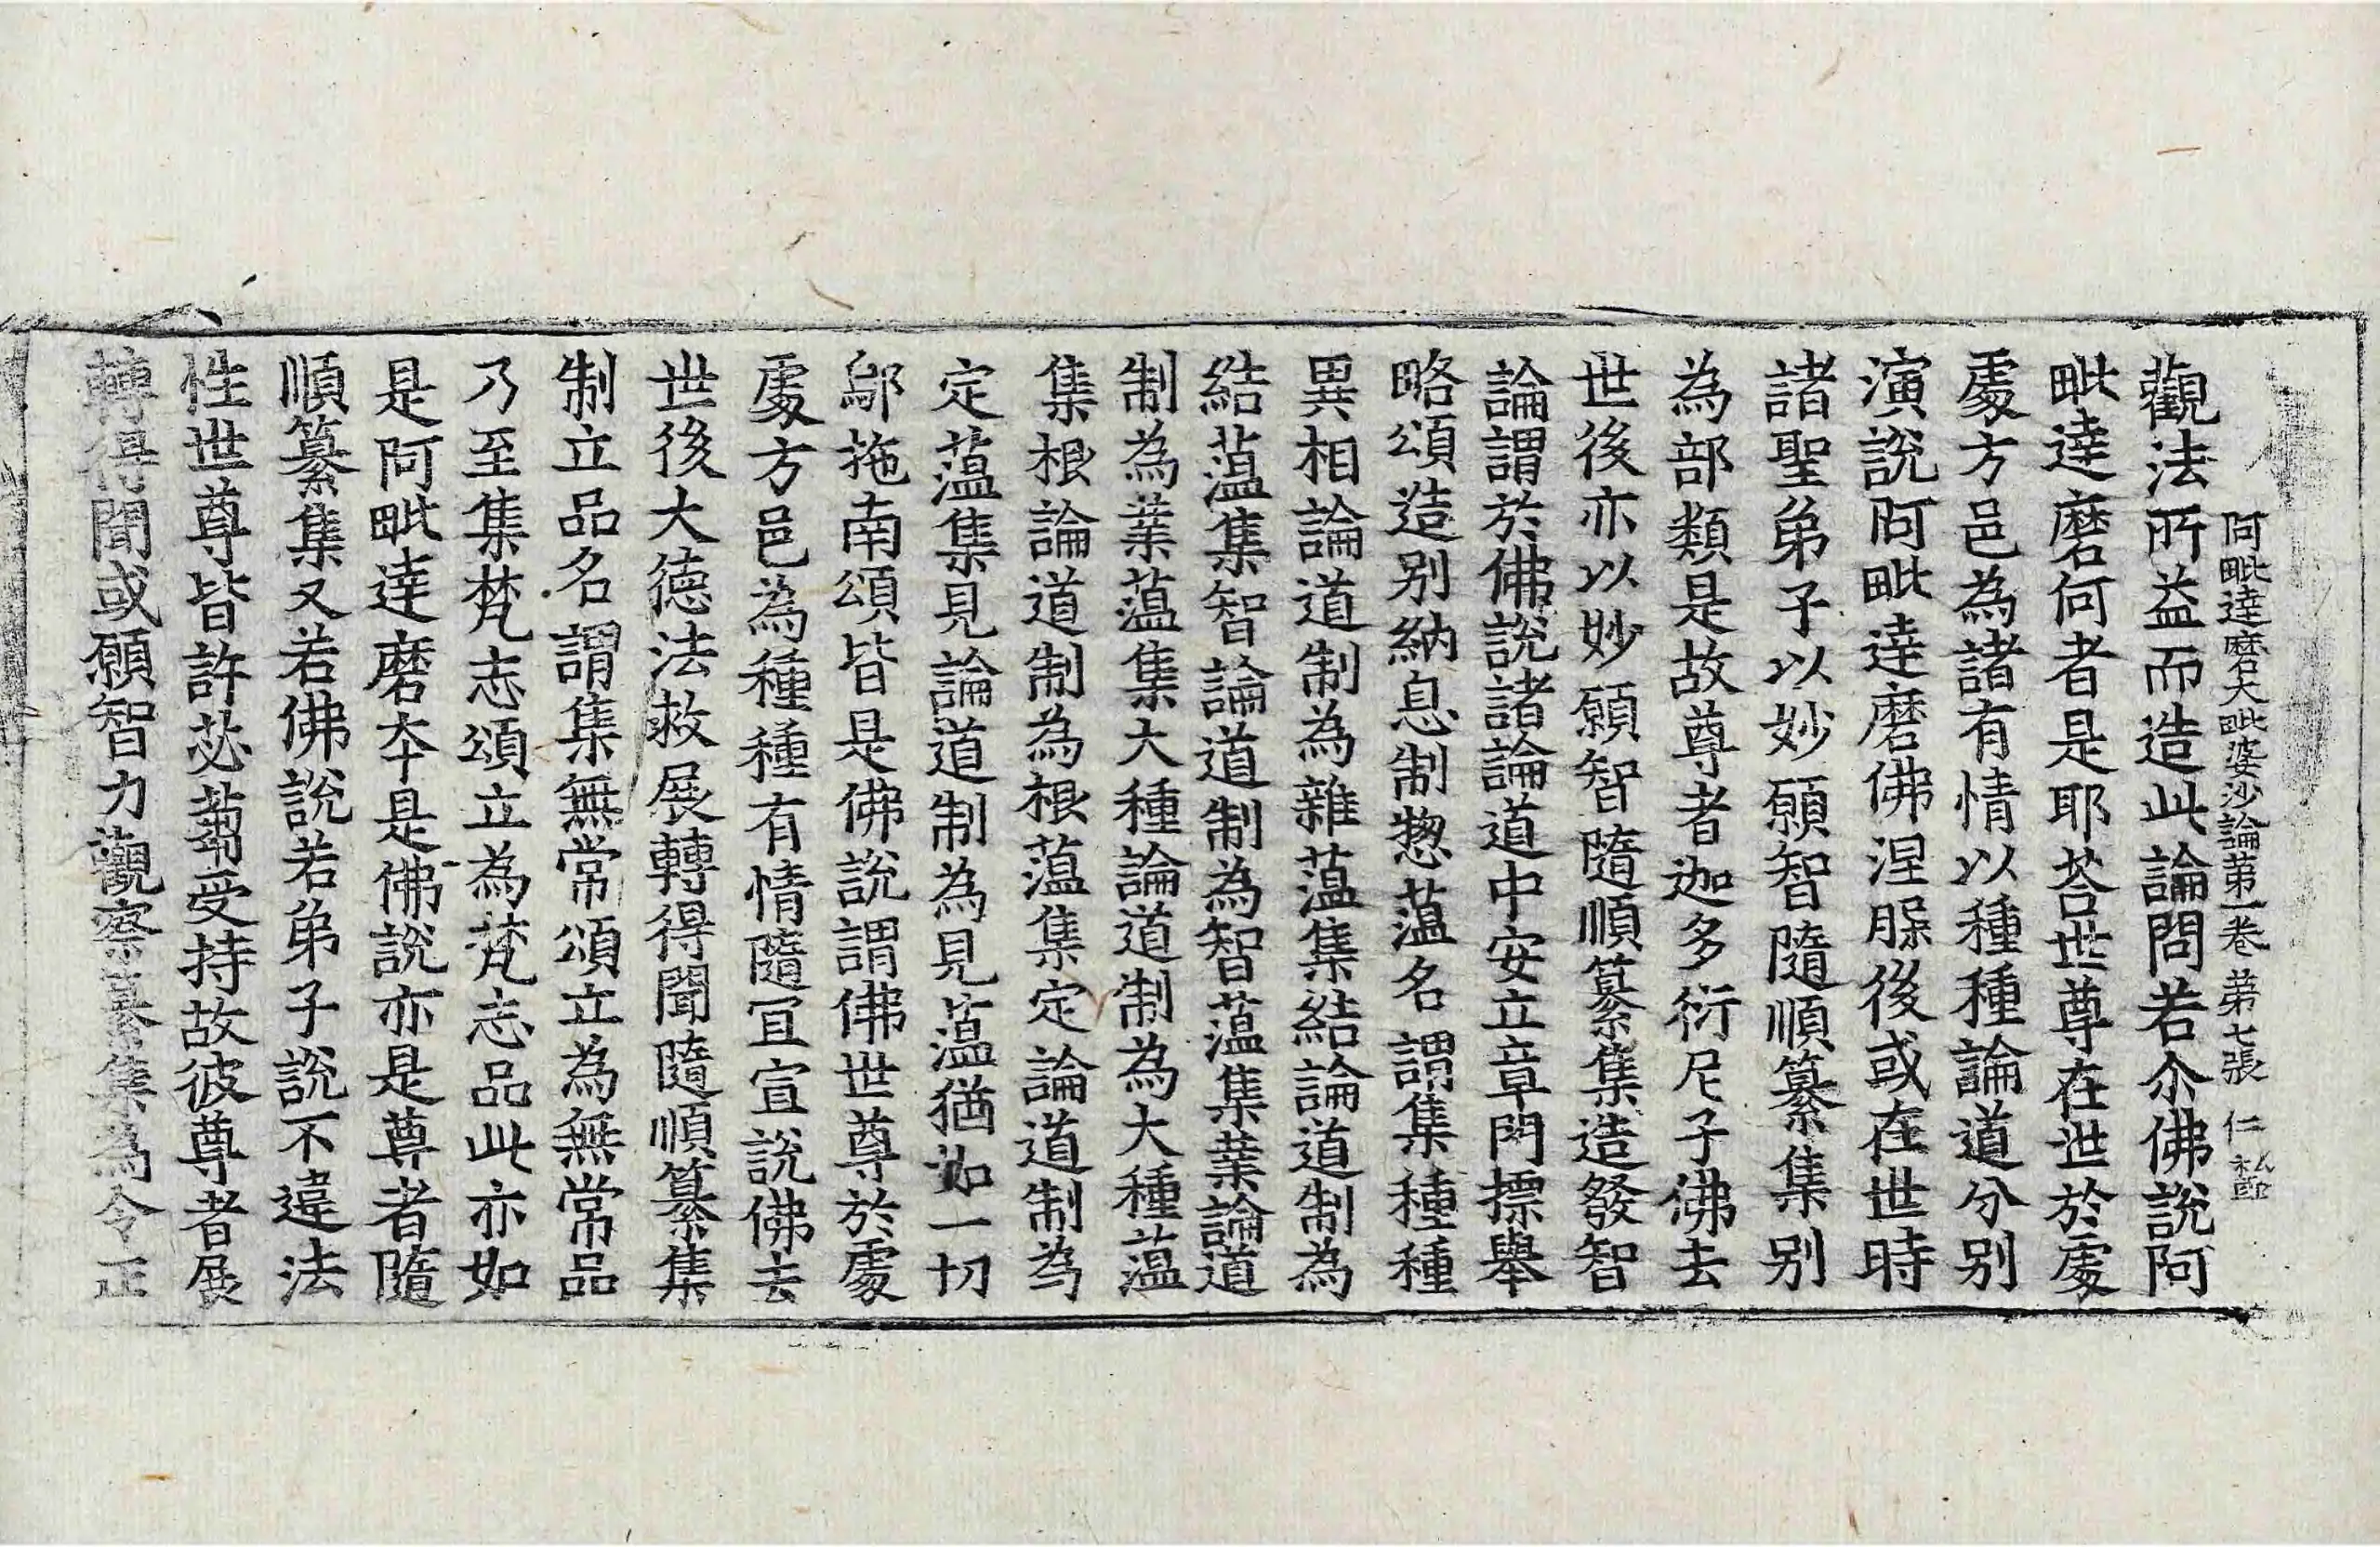 阿毗達磨大毗婆沙論第一卷 第七張 仁
觀法所益而造此論問若尒佛說阿
毗達磨何者是耶荅世尊在世於處
處方邑為諸有情以種種論道分別
演說阿毗達磨佛涅腺後或在世時
諸聖弟子以妙願智隨順纂集別
為部類是故尊者迦多衍尼子佛去
世後亦以妙願智隨順纂集造發智
論謂於佛說諸論道中安立章門摽舉
略頌造別納息制惣蘊名謂集種種
異相論道制為雜蘊集結論道制為
結蘊集智論道制為智蘊集業論道
制為業蘊集大種論道制為大種蘊
集根論道制為根蘊集定論道制為
定蘊集見論道制為見蘊猶如一切
鄔拖南頌皆是佛說謂佛世尊於處
處方邑為種種有情隨冝宣說佛去
世後大德法救展轉得聞隨順纂集
制立品名謂集無常頌立為無常品
乃至集梵志頌立為梵志品此亦如
是阿毗達磨本是佛說亦是尊者隨
順纂集又若佛說若弟子說不違法
性世尊皆許苾蒭受持故彼尊者展
轉得聞或願智力觀察纂集為令正